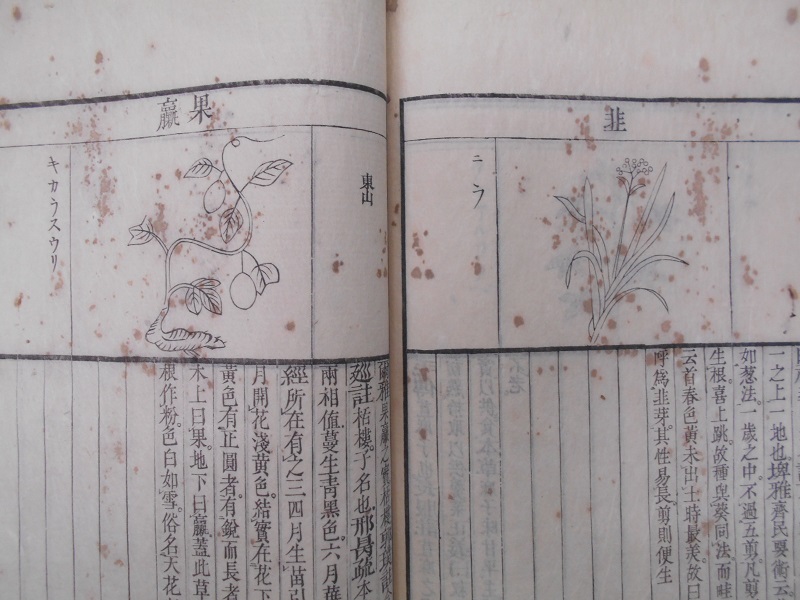 韭
ニラ
一之上一地也。埤雅齊民要術云。
如葱法。一歲之中。不過五剪。凡剪
生根。喜上跳。故種與葵同法而畦
云首春色黃。未出土時最美。故曰
呼爲韭芽。其性易長。剪則便生
果臝
東山
キカラスウリ
廵註栝樓。子名也。邢昺疏本
兩相值。蔓生靑黑色。六月葉
經所在有之。三四月生苗引
月開花淺黃色。結實在花下
黃色。有正圓者。有銳而長者
木上曰果。地下曰臝。蓋此草
根作粉。色白如雪。俗名天花